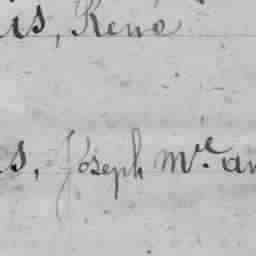 is, René
s, Joseph Mce an